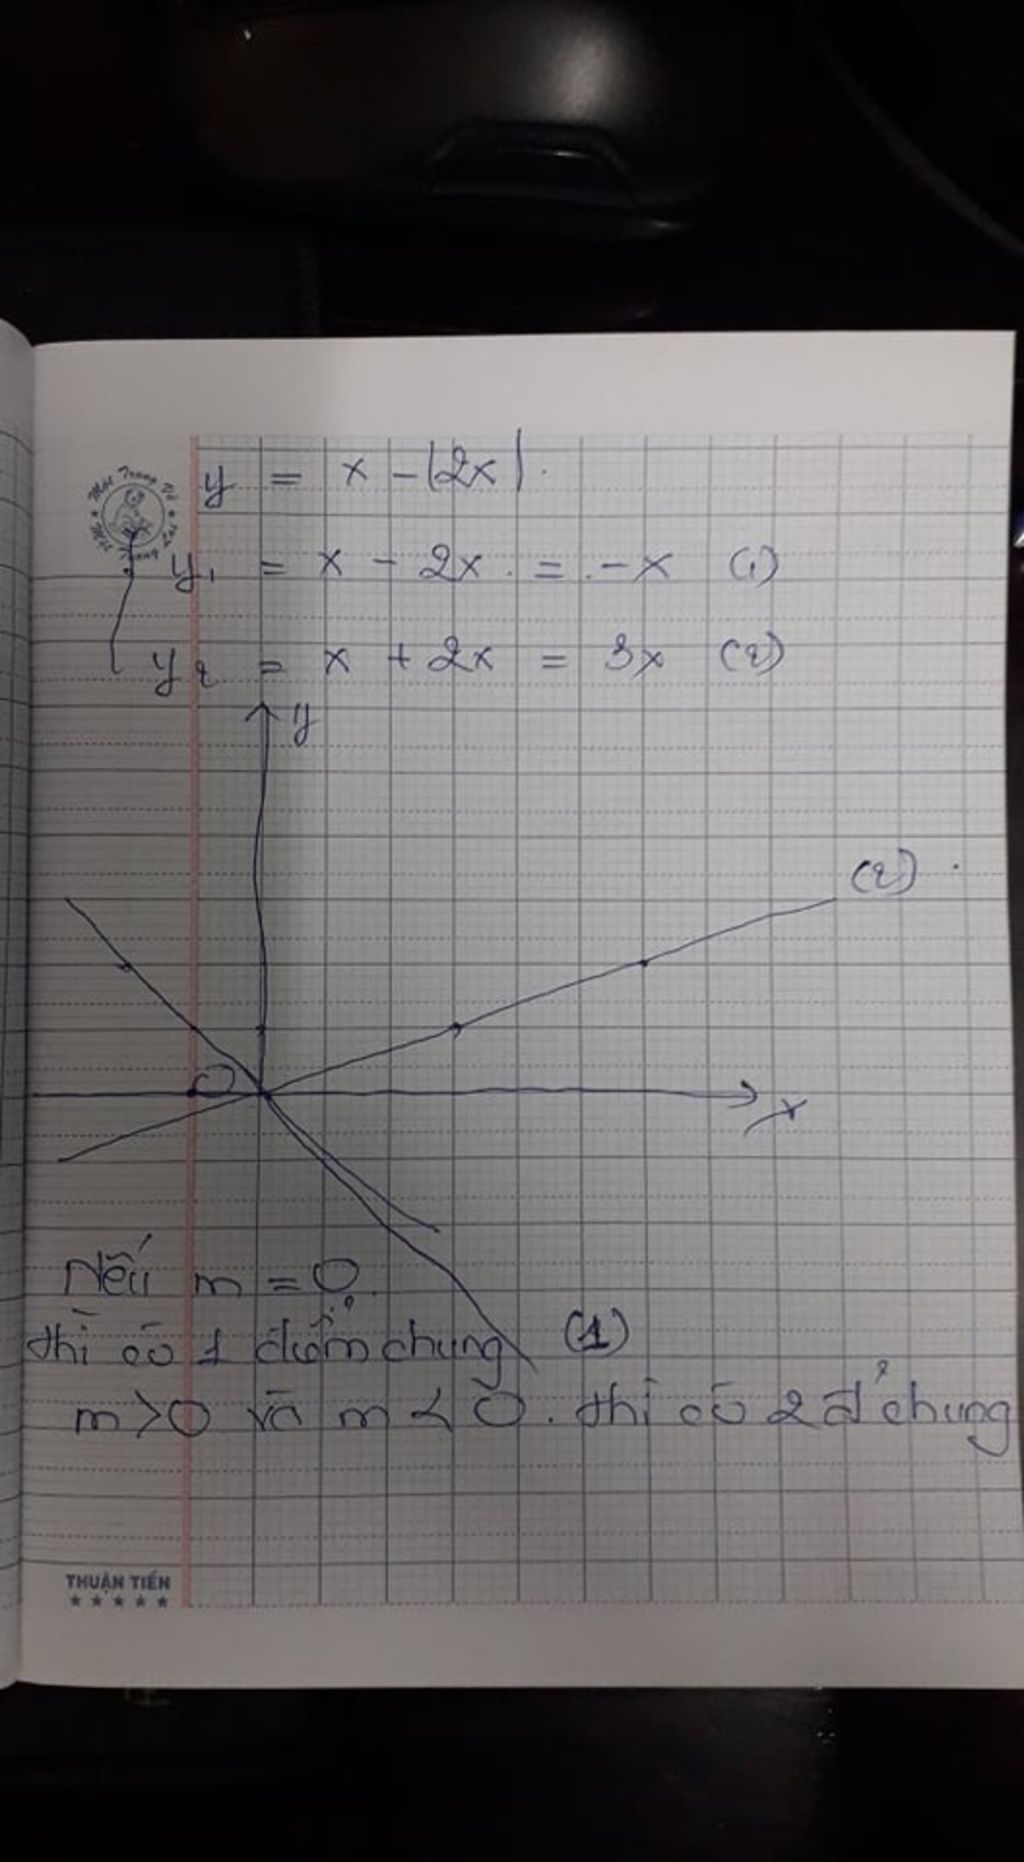 y = x - |2x|.
y₁ = x - 2x. = .-x (1)
y₂ = x + 2x = 3x (2)
y
(2)
O
x
Nếu m = 0.
thì có 1 điểm chung (1)
m > 0 và m < 0. thì có 2 đ' chung
THUẬN TIẾN